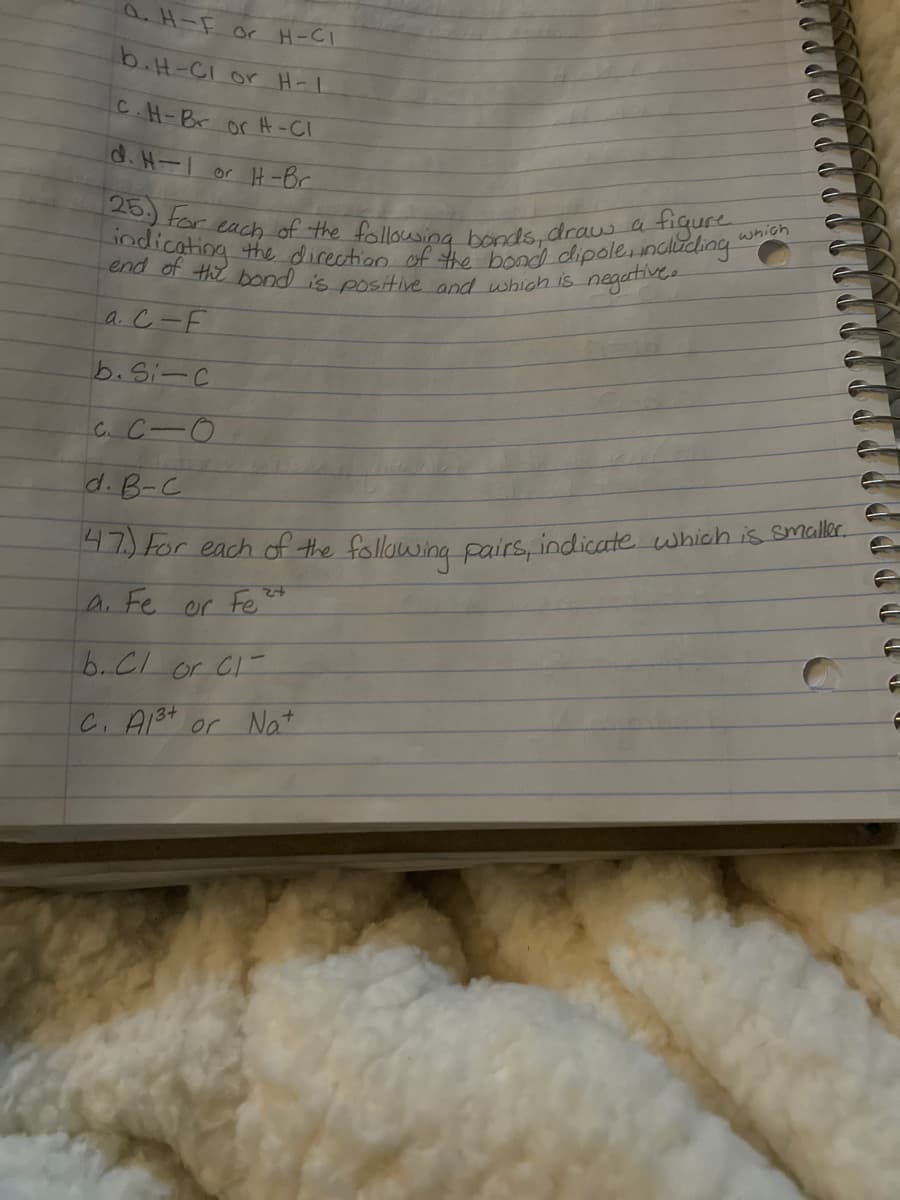 a. H-F or H-Cl
b. H-Cl or H-I
c. H-Br or H-Cl
d. H-I or H-Br
25.) For each of the following bonds, draw a figure
indicating the direction of the bond dipole, including which
end of the bond is positive and which is negative.
a. C-F
b. Si-C
c. C-O
d. B-C
47.) For each of the following pairs, indicate which is smaller.
a. Fe or Fe²⁺
b. Cl or Cl⁻
c. Al³⁺ or Na⁺